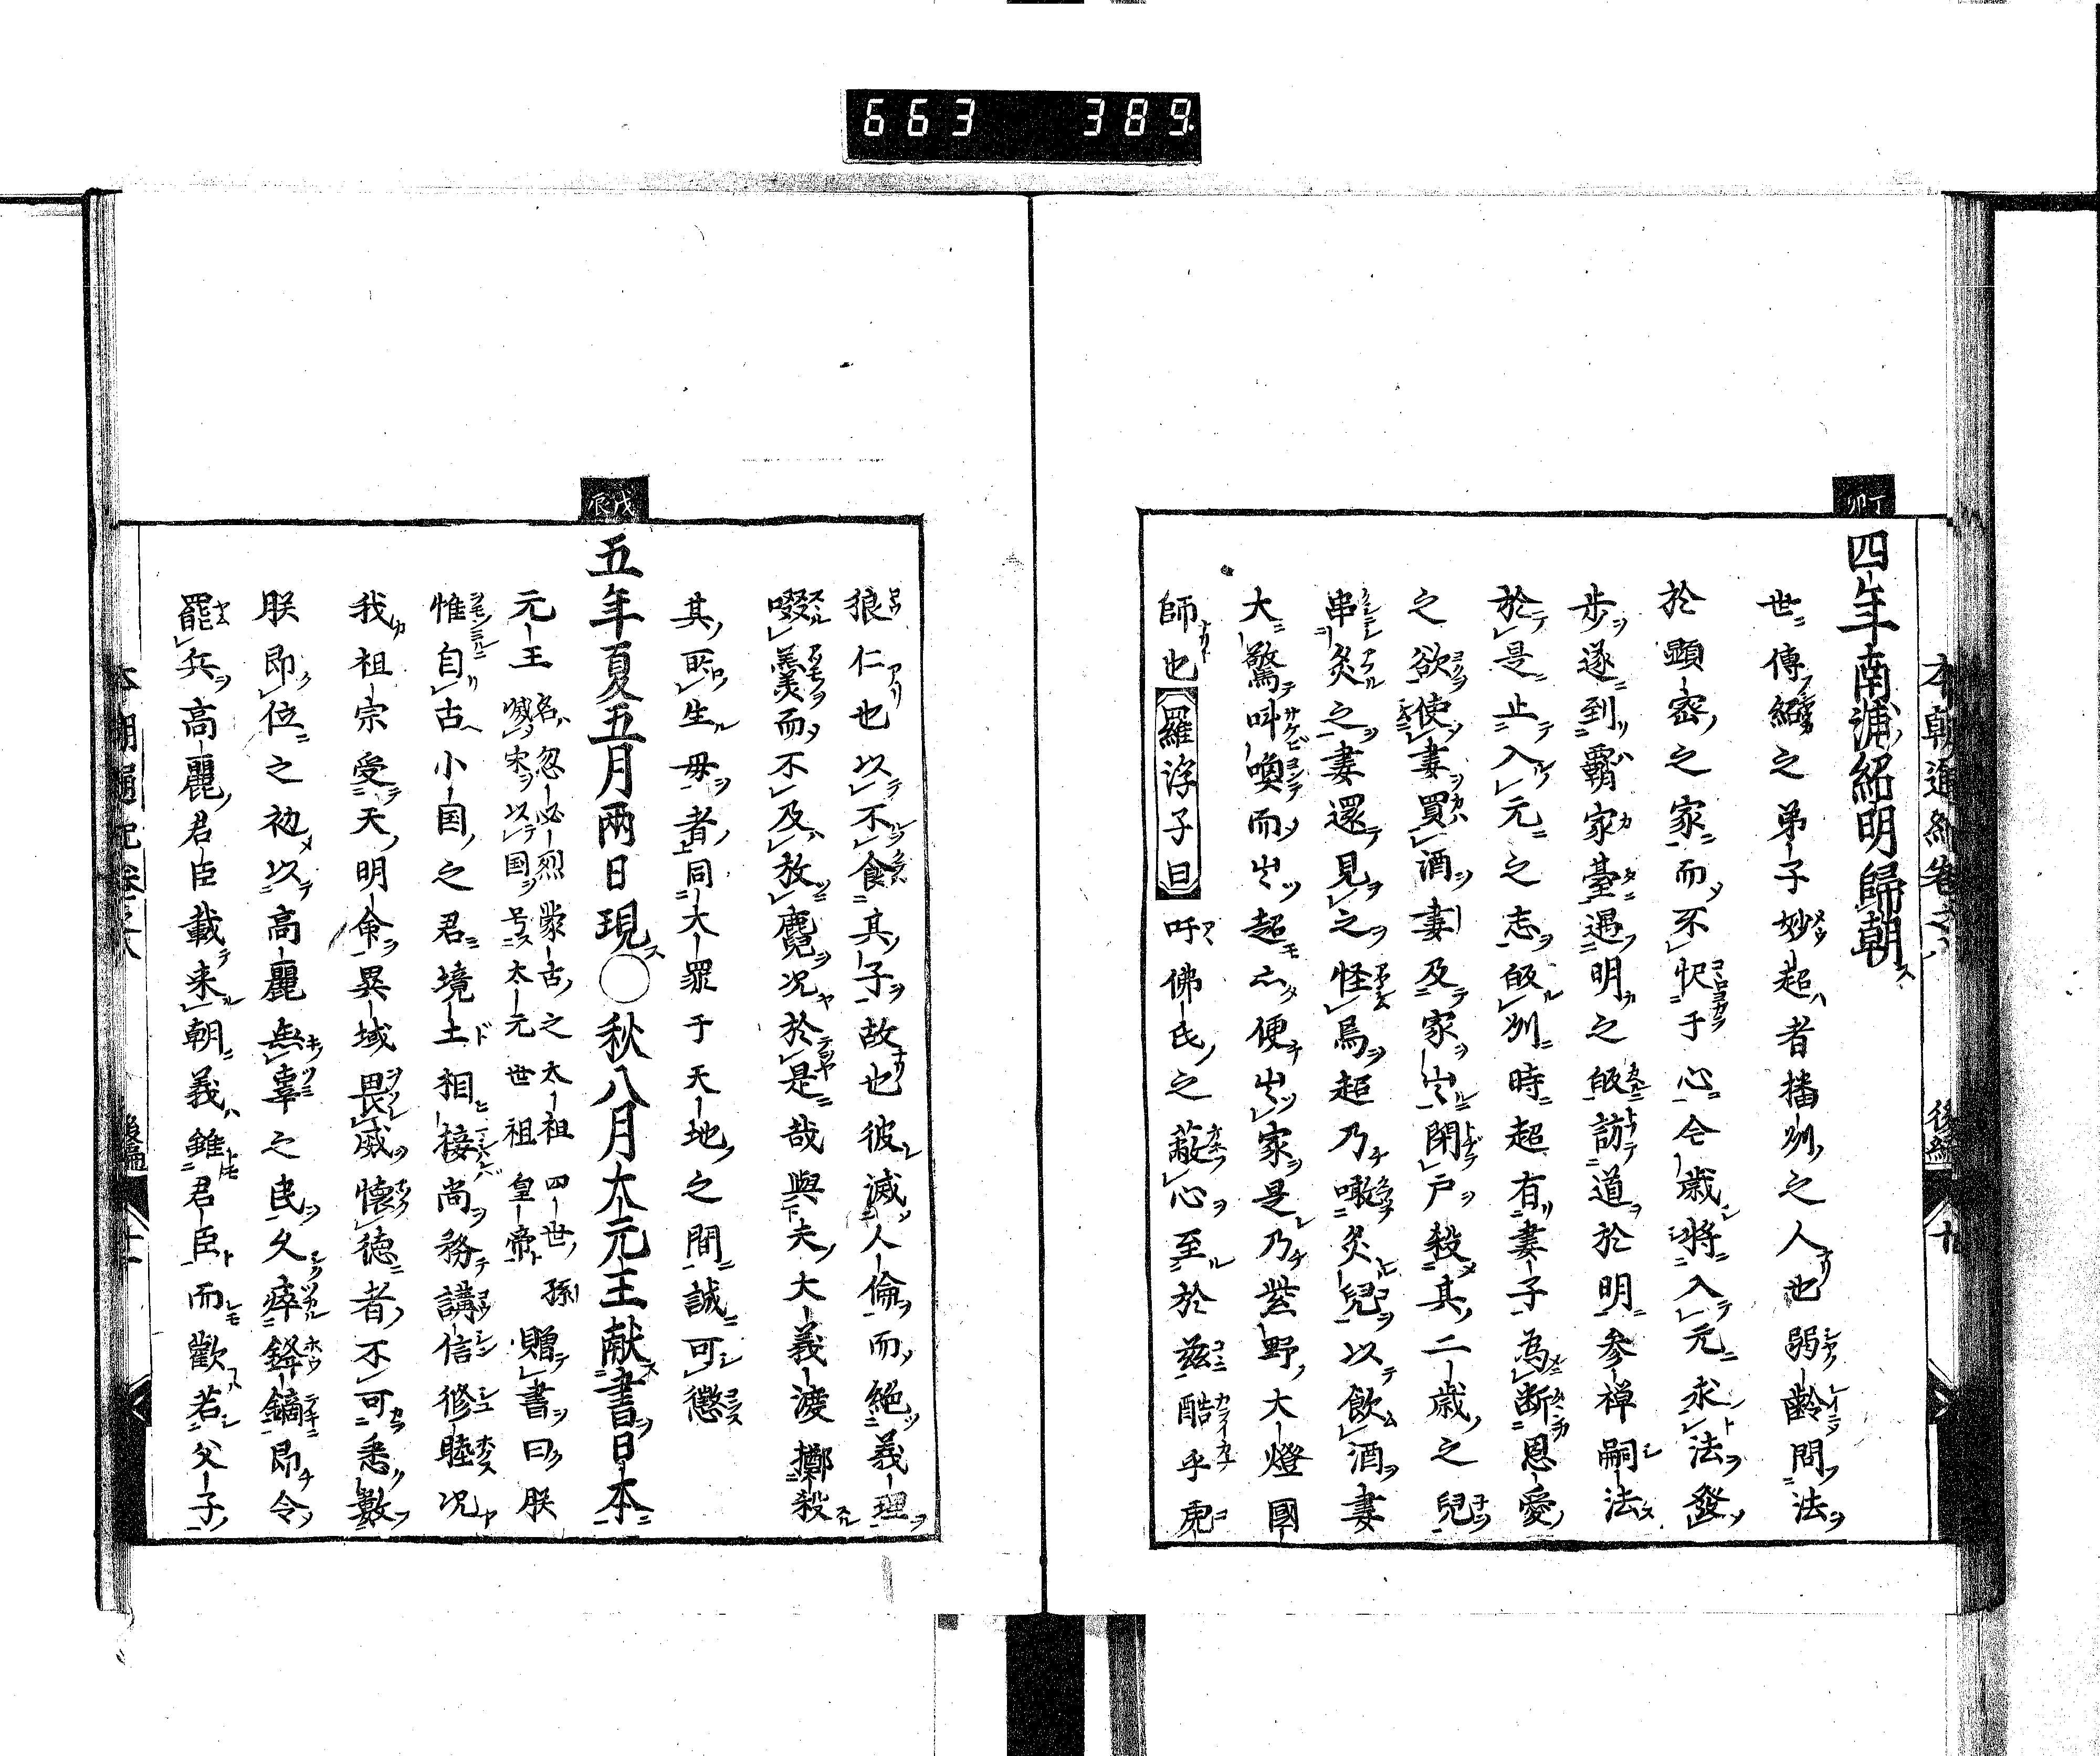 663 389
本朝通紀卷之八 後編 十
丁卯
四年南浦紹明歸朝
世傳紹之弟子妙超者播州之人也弱齡問法
於顯密之家而不怾于心仝歲將入元求法發
步遂到覇家臺遇明之皈訪道於明参禅嗣法
於是止入元之志皈州時超有妻子為断恩愛
之欲使妻買酒妻及家出閉戸殺其二歲之兒
串炙之妻還見之怪焉超乃噉炙兒以飲酒妻
大驚叫喚而出超亦便出家是乃紫野大燈國
師也羅浮子曰吁佛氏之蔽心至於兹酷乎虎
狼仁也以不食其子故也彼滅人倫而絕義理
啜羹而不及放麑况於是哉與夫大義渡擲殺
其所生毋者同大罪于天地之間誠可懲
戊辰
五年夏五月兩日現○秋八月大元王献書日本
元王名忽必烈蒙古之太祖四世孫
滅宋以国号太元世祖皇帝贈書曰朕
惟自古小国之君境土相接尚務講信修睦况
我祖宗受天明命異域畏威懷德者不可悉數
朕即位之初以高麗無辜之民久瘁鋒鏑即令
罷兵高麗君臣載来朝義雖君臣而歡若父子
本朝通紀卷之八 後編 十一